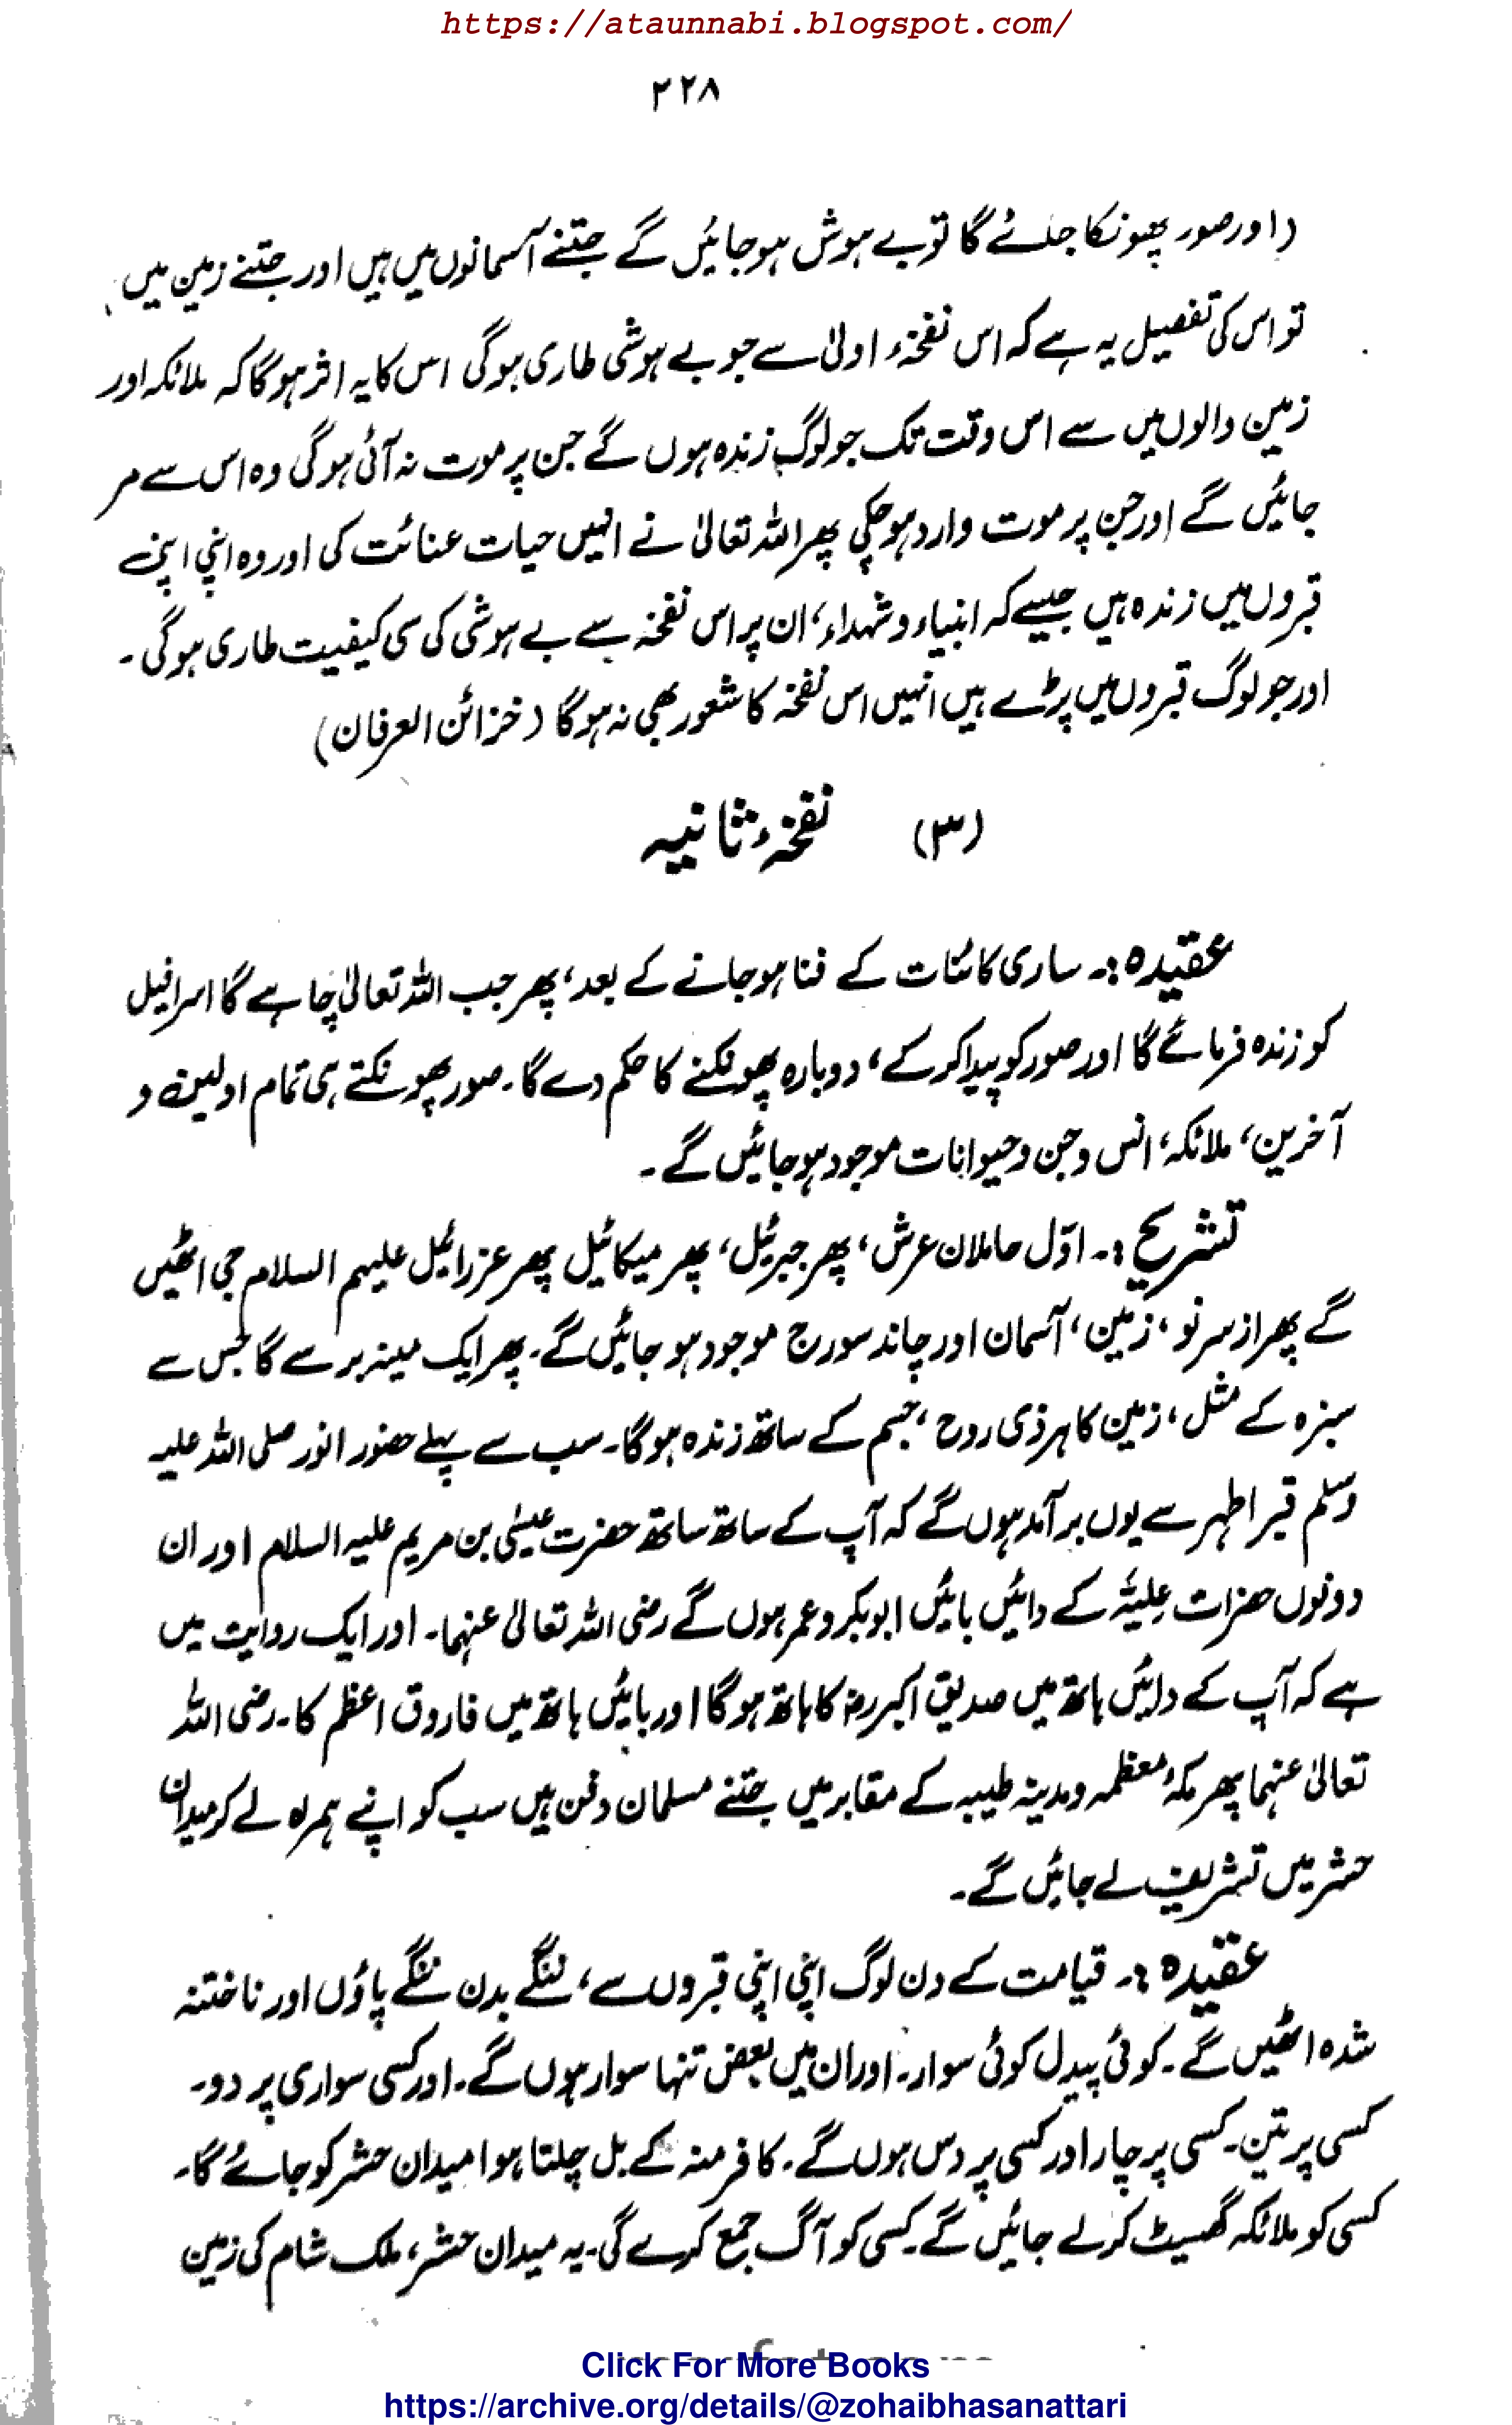 https://ataunnabi.blogspot.com/
۲۲۸
(اور صور پھونکا جائے گا تو بے ہوش ہو جائیں گے جتنے آسمانوں میں ہیں اور جتنے زمین میں)
تو اس کی تفصیل یہ ہے کہ اس نفخۂ اولیٰ سے جو بے ہوشی طاری ہوگی اس کا یہ اثر ہوگا کہ ملائکہ اور
زمین والوں میں سے اس وقت تک جو لوگ زندہ ہوں گے جن پر موت نہ آئی ہوگی وہ اس سے مر
جائیں گے اور جن پر موت وارد ہو چکی پھر اللہ تعالیٰ نے انہیں حیات عنائت کی اور وہ اپنی اپنی
قبروں میں زندہ ہیں جیسے کہ انبیاء و شہداء، ان پر اس نفخہ سے بے ہوشی کی سی کیفیت طاری ہوگی۔
اور جو لوگ قبروں میں پڑے ہیں انہیں اس نفخہ کا شعور بھی نہ ہوگا (خزائن العرفان)
(۳) نفخۂ ثانیہ
عقیدہ :۔ ساری کائنات کے فنا ہو جانے کے بعد، پھر جب اللہ تعالیٰ چاہے گا اسرافیل
کو زندہ فرمائے گا اور صور کو پیدا کر کے، دوبارہ پھونکنے کا حکم دے گا۔ صور پھونکتے ہی تمام اولین و
آخرین، ملائکہ، انس و جن و حیوانات موجود ہو جائیں گے۔
تشریح :۔ اوّل حاملان عرش، پھر جبرئیل، پھر میکائیل پھر عزرائیل علیہم السلام جی اٹھیں
گے پھر از سر نو، زمین، آسمان اور چاند سورج موجود ہو جائیں گے۔ پھر ایک مینہ برسے گا جس سے
سبزہ کے مثل، زمین کا ہر ذی روح، جسم کے ساتھ زندہ ہوگا۔ سب سے پہلے حضور انور صلی اللہ علیہ
وسلم قبر اطہر سے یوں برآمد ہوں گے کہ آپ کے ساتھ ساتھ حضرت عیسیٰ بن مریم علیہ السلام اور ان
دونوں حضرات عِلیَّہ کے دائیں بائیں ابوبکر و عمر ہوں گے رضی اللہ تعالیٰ عنہما۔ اور ایک روایت میں
ہے کہ آپ کے دائیں ہاتھ میں صدیق اکبرؓ کا ہاتھ ہوگا اور بائیں ہاتھ میں فاروق اعظم کا۔ رضی اللہ
تعالیٰ عنہما پھر مکۂ معظمہ و مدینہ طیبہ کے مقابر میں جتنے مسلمان دفن ہیں سب کو اپنے ہمراہ لے کر میدان
حشر میں تشریف لے جائیں گے۔
عقیدہ :۔ قیامت کے دن لوگ اپنی اپنی قبروں سے، ننگے بدن ننگے پاؤں اور ناختنہ
شدہ اٹھیں گے۔ کوئی پیدل کوئی سوار۔ اور ان میں بعض تنہا سوار ہوں گے۔ اور کسی سواری پر دو۔
کسی پر تین۔ کسی پر چار اور کسی پر دس ہوں گے۔ کافر منہ کے بل چلتا ہوا میدان حشر کو جائے گا۔
کسی کو ملائکہ گھسیٹ کر لے جائیں گے۔ کسی کو آگ جمع کرے گی۔ یہ میدان حشر، ملک شام کی زمین
Click For More Books
https://archive.org/details/@zohaibhasanattari